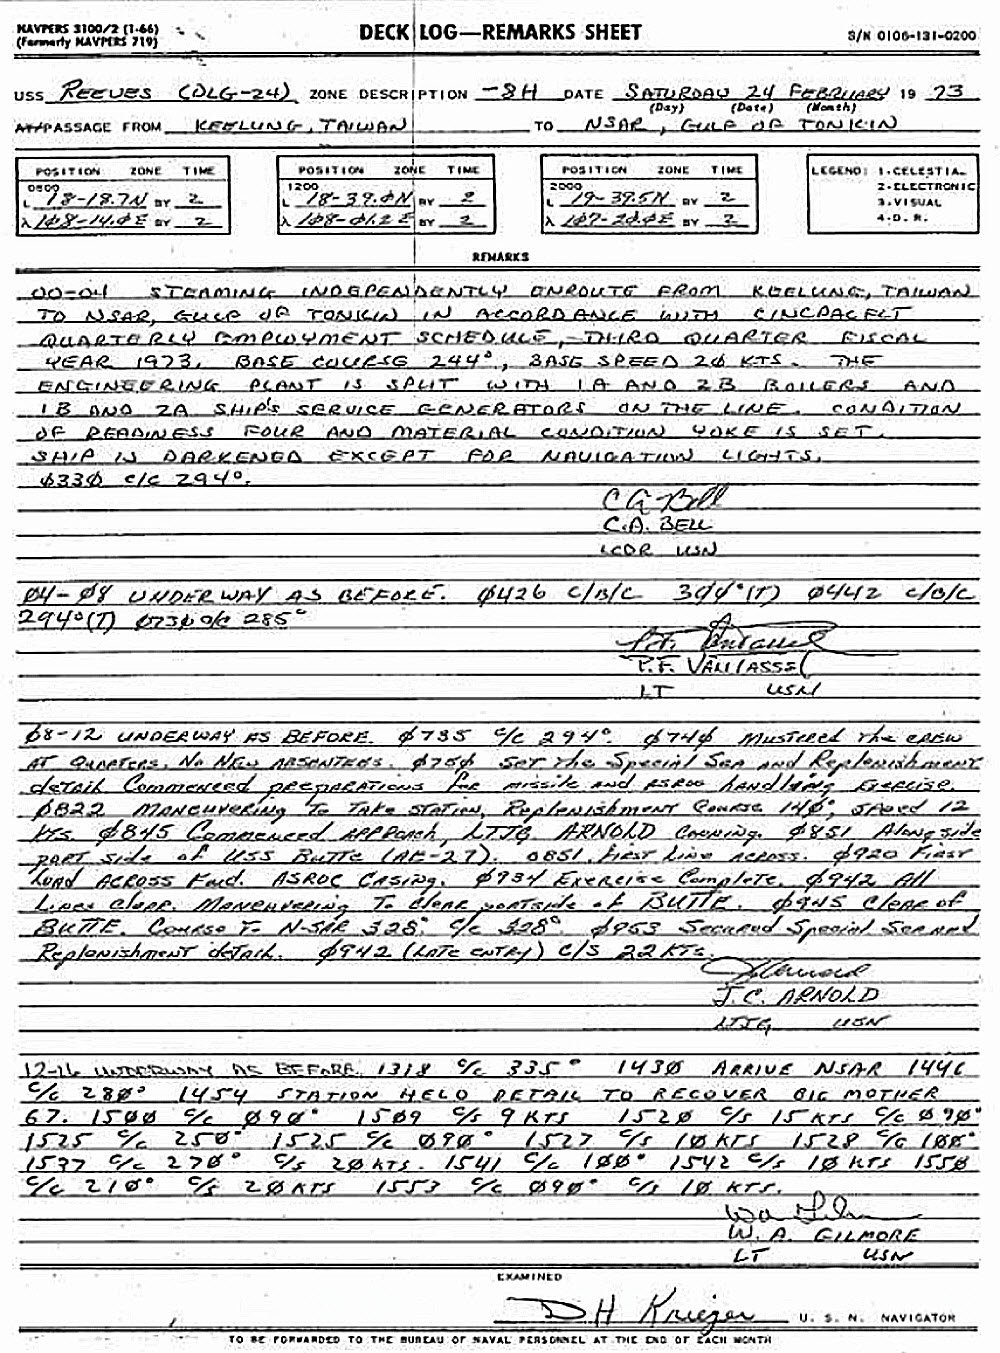 NAVPERS 3100/2 (1-66)
(Formerly NAVPERS 719)
DECK LOG—REMARKS SHEET
S/N 0106-131-0200
USS REEVES (DLG-24) ZONE DESCRIPTION -8H DATE SATURDAY 24 FEBRUARY 19 73
(Day) (Date) (Month)
AT/PASSAGE FROM KEELUNG, TAIWAN TO NSAR, GULF OF TONKIN
POSITION ZONE TIME
0800
L 18-18.7N BY 2
λ 1Ø8-14.Ø E BY 2
POSITION ZONE TIME
1200
L 18-39.ØN BY 2
λ 1Ø8-Ø1.2 E BY 2
POSITION ZONE TIME
2000
L 19-39.5N BY 2
λ 1Ø7-2Ø.Ø E BY 2
LEGEND: 1-CELESTIAL
2-ELECTRONIC
3-VISUAL
4-D. R.
REMARKS
00-04 STEAMING INDEPENDENTLY ENROUTE FROM KEELUNG, TAIWAN
TO NSAR, GULF OF TONKIN IN ACCORDANCE WITH CINCPACFLT
QUARTERLY EMPLOYMENT SCHEDULE, THIRD QUARTER FISCAL
YEAR 1973. BASE COURSE 244°, BASE SPEED 2Ø KTS. THE
ENGINEERING PLANT IS SPLIT WITH 1A AND 2B BOILERS AND
1B AND 2A SHIP'S SERVICE GENERATORS ON THE LINE. CONDITION
OF READINESS FOUR AND MATERIAL CONDITION YOKE IS SET.
SHIP IS DARKENED EXCEPT FOR NAVIGATION LIGHTS.
Ø33Ø C/C 294°.
C A Bell
C.A. BELL
LCDR USN
Ø4-Ø8 UNDERWAY AS BEFORE. Ø426 C/B/C 344°(T) Ø442 C/B/C
294°(T) Ø73Ø C/C 285°
P.F. VANTASSEL
LT USN
Ø8-12 UNDERWAY AS BEFORE. Ø735 C/C 294°. Ø74Ø Mustered the crew
AT Quarters. No New absentees. Ø75Ø Set the Special Sea and Replenishment
detail Commenced preparations for missile and ASROC handling Exercise.
Ø822 Maneuvering To Take station, Replenishment Course 14Ø°, speed 12
kts Ø845 Commenced Approach, LTJG ARNOLD Conning. Ø851 Alongside
port side of USS Butte (AE-27). 0851 First Line across. Ø920 First
Load across Fwd. ASROC Casing. Ø934 Exercise Complete. Ø942 All
Lines Clear. Maneuvering To clear portside of BUTTE. Ø945 Clear of
BUTTE. Course To N-SAR 328° C/C 328°. Ø953 Secured Special Sea and
Replenishment detail. Ø942 (late entry) C/S 22 KTS.
J.C. ARNOLD
LTJG USN
12-16 UNDERWAY AS BEFORE. 1318 C/C 335° 143Ø ARRIVE NSAR 1446
C/C 28Ø° 1454 STATION HELO DETAIL TO RECOVER BIG MOTHER
67. 15ØØ C/C Ø9Ø° 15Ø9 C/S 9 KTS 152Ø C/S 15 KTS C/C Ø9Ø°
1525 C/C 25Ø° 1525 C/C Ø7Ø° 1527 C/S 1Ø KTS 1528 C/C 1ØØ°
1537 C/C 27Ø° C/S 2Ø KTS. 1541 C/C 1ØØ° 1542 C/S 1Ø KTS 155Ø
C/C 21Ø° C/S 2Ø KTS 1553 C/C Ø9Ø° C/S 1Ø KTS.
W. A. GILMORE
LT USN
EXAMINED
D H Krieger U. S. N. NAVIGATOR
TO BE FORWARDED TO THE BUREAU OF NAVAL PERSONNEL AT THE END OF EACH MONTH